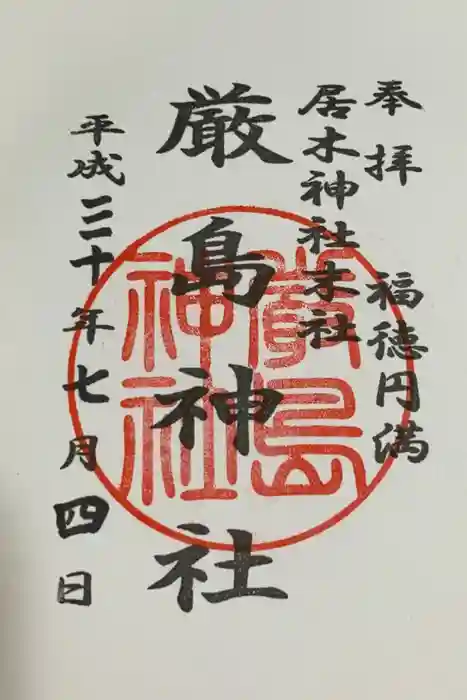 奉拝 福徳円満
居木神社末社
厳島神社
平成三十年七月四日
厳島
神社